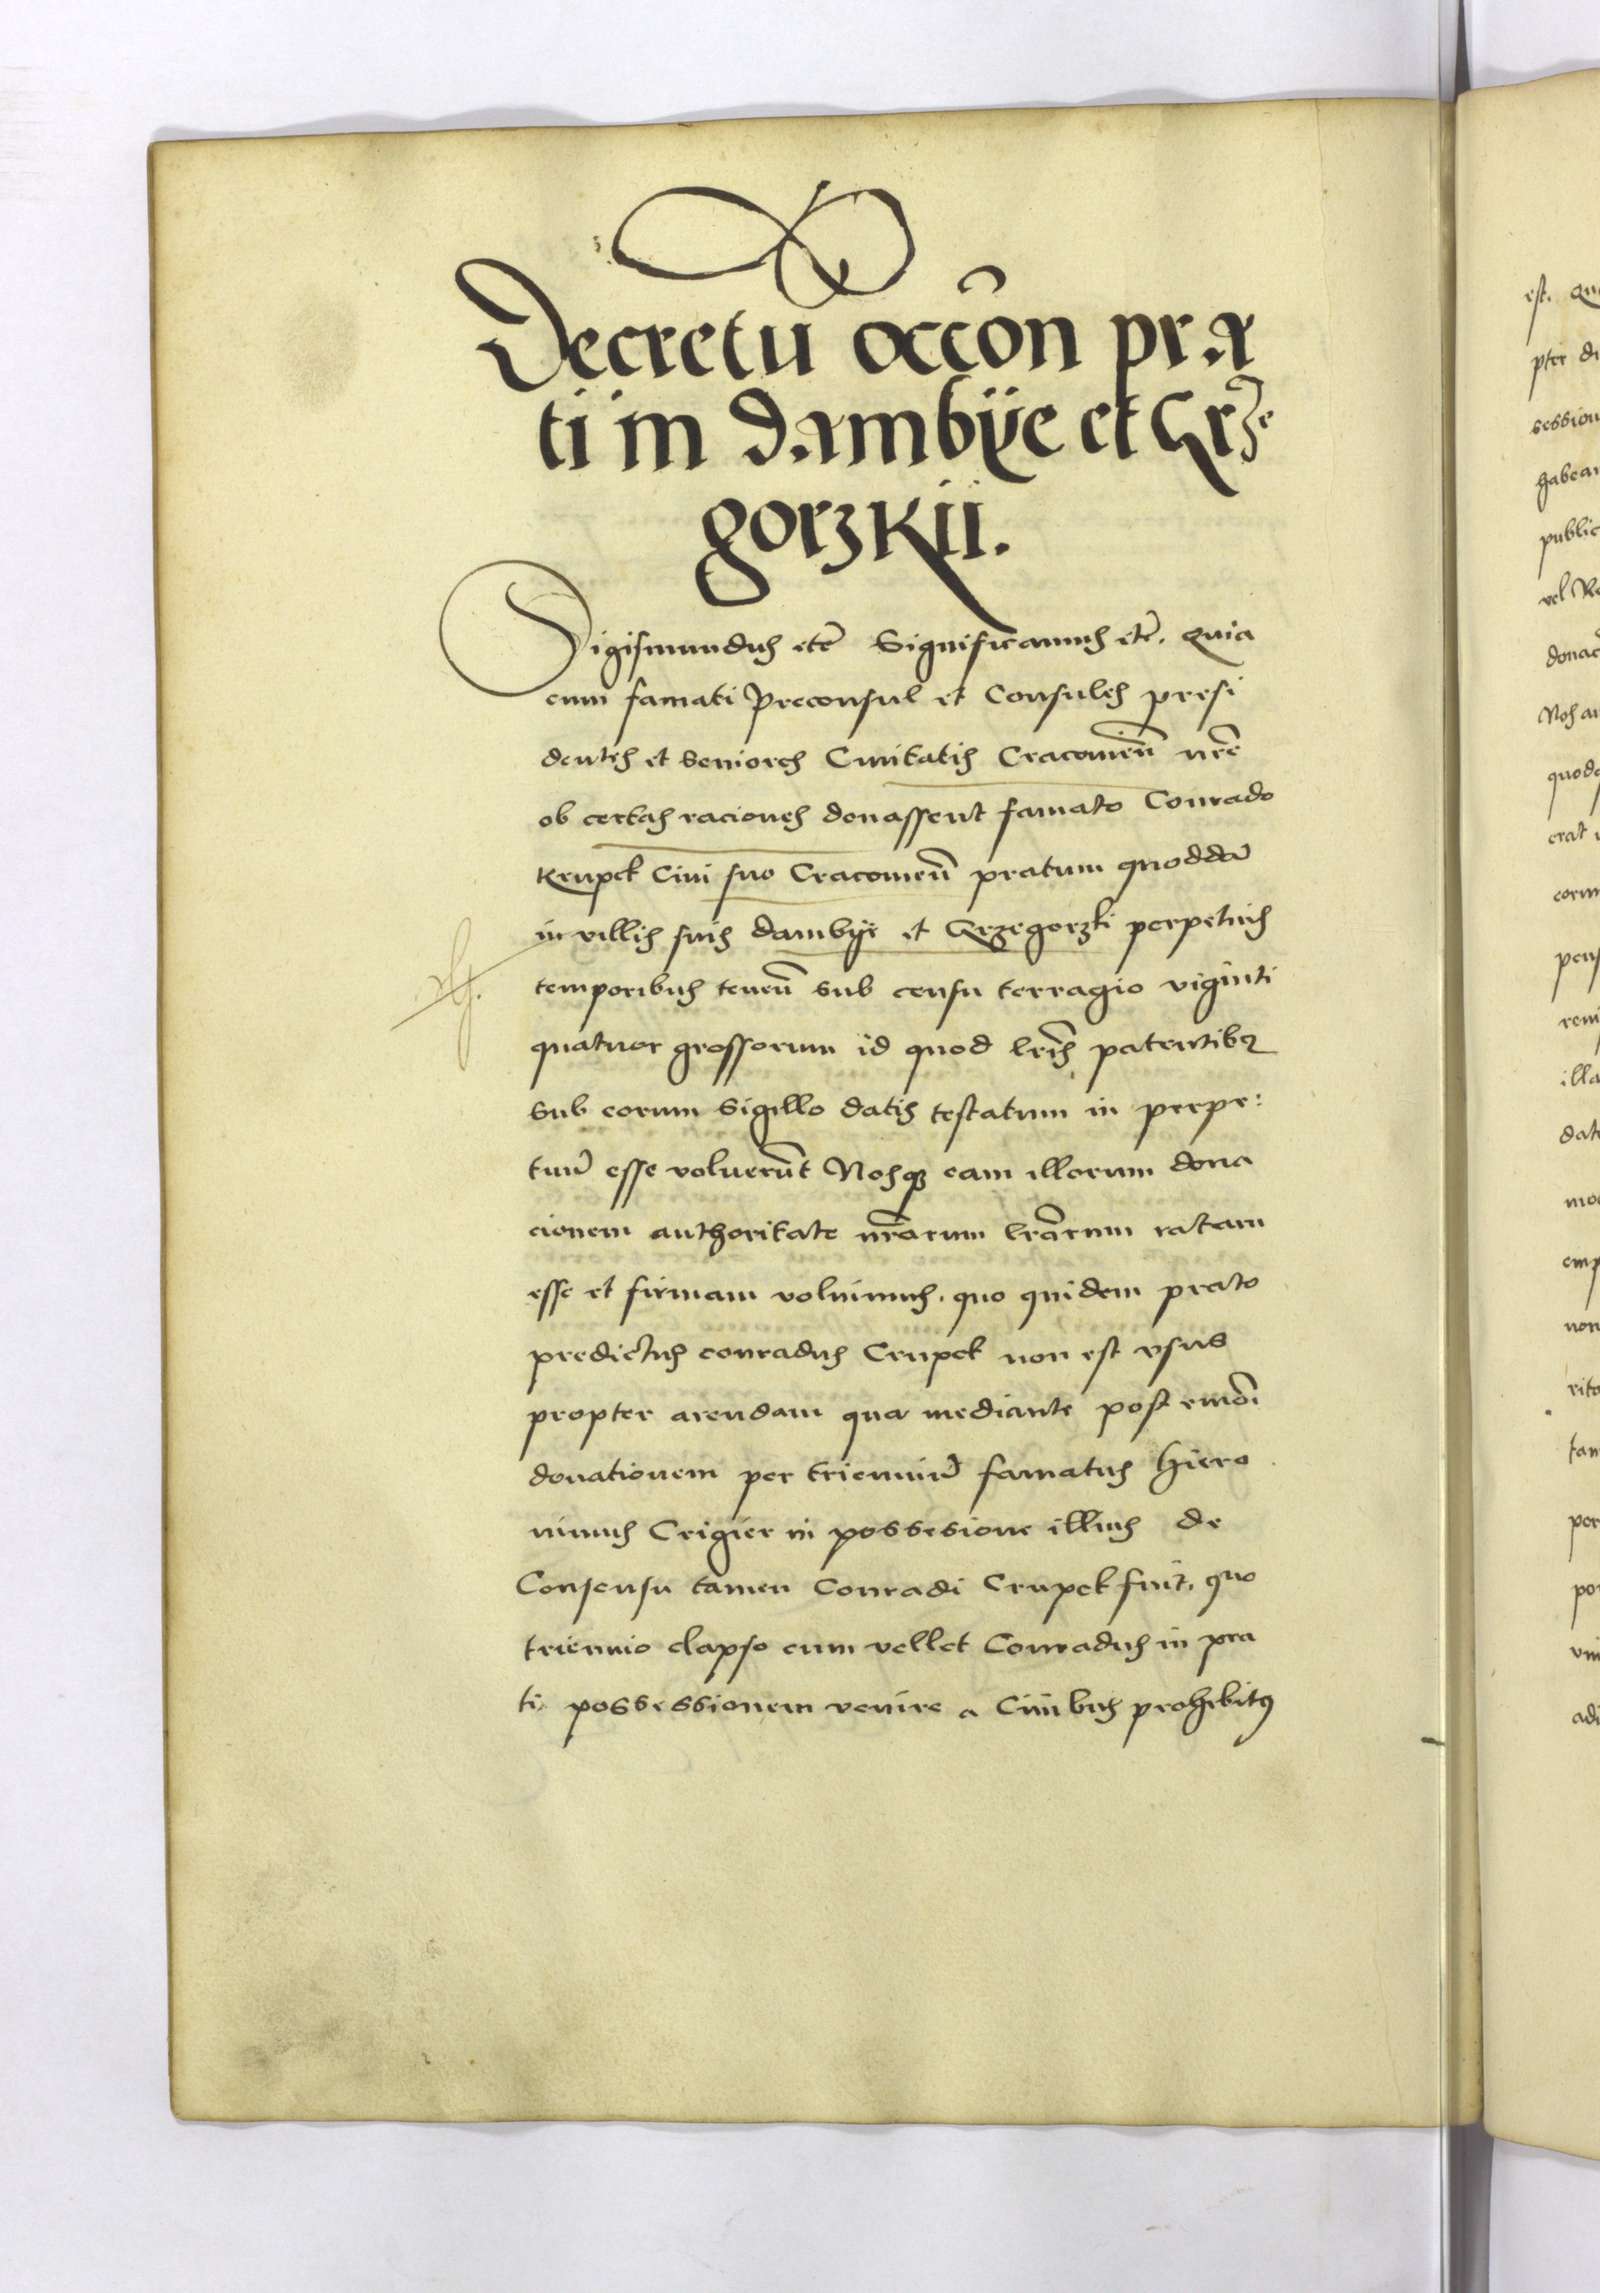 Decretū occōn pra
ti in dambÿe et Grze
gorzkii.
Sigismundus etc̄ Significamus etc̄. Quia
cum famati Preconsul et Consules presi
dentes et Seniores Civitatis Cracovien̄ nr̄e
ob certas raciones donassent famato Conrado
Krupek Civi suo Cracovien̄ pratum quoddā
in villis suis dambÿe et Grzegorzki perpetuis
temporibus tenen̄ sub censu terragio viginti
quatuor grossorum id quod lr̄is patentibꝫ
sub eorum Sigillo datis testatum in perpe:
tuū esse voluerūt Nosqꝫ eam illorum dona
cionem authoritate nr̄arum lr̄arum ratam
esse et firmam voluimus. quo quidem prato
predictus conradus Crupek non est vsus
propter arendam qua mediante post
donationem per trienniū famatus Hiero
nimus Crigier in possesione illius de
Consensu tamen Conradi Crupek fuit. quo
triennio elapso cum vellet Conradus in pra
ti possessionem venire a Civibus prohibitꝰ
est.
pter
session
habea
public
donac
Nos
quod
erat
illa